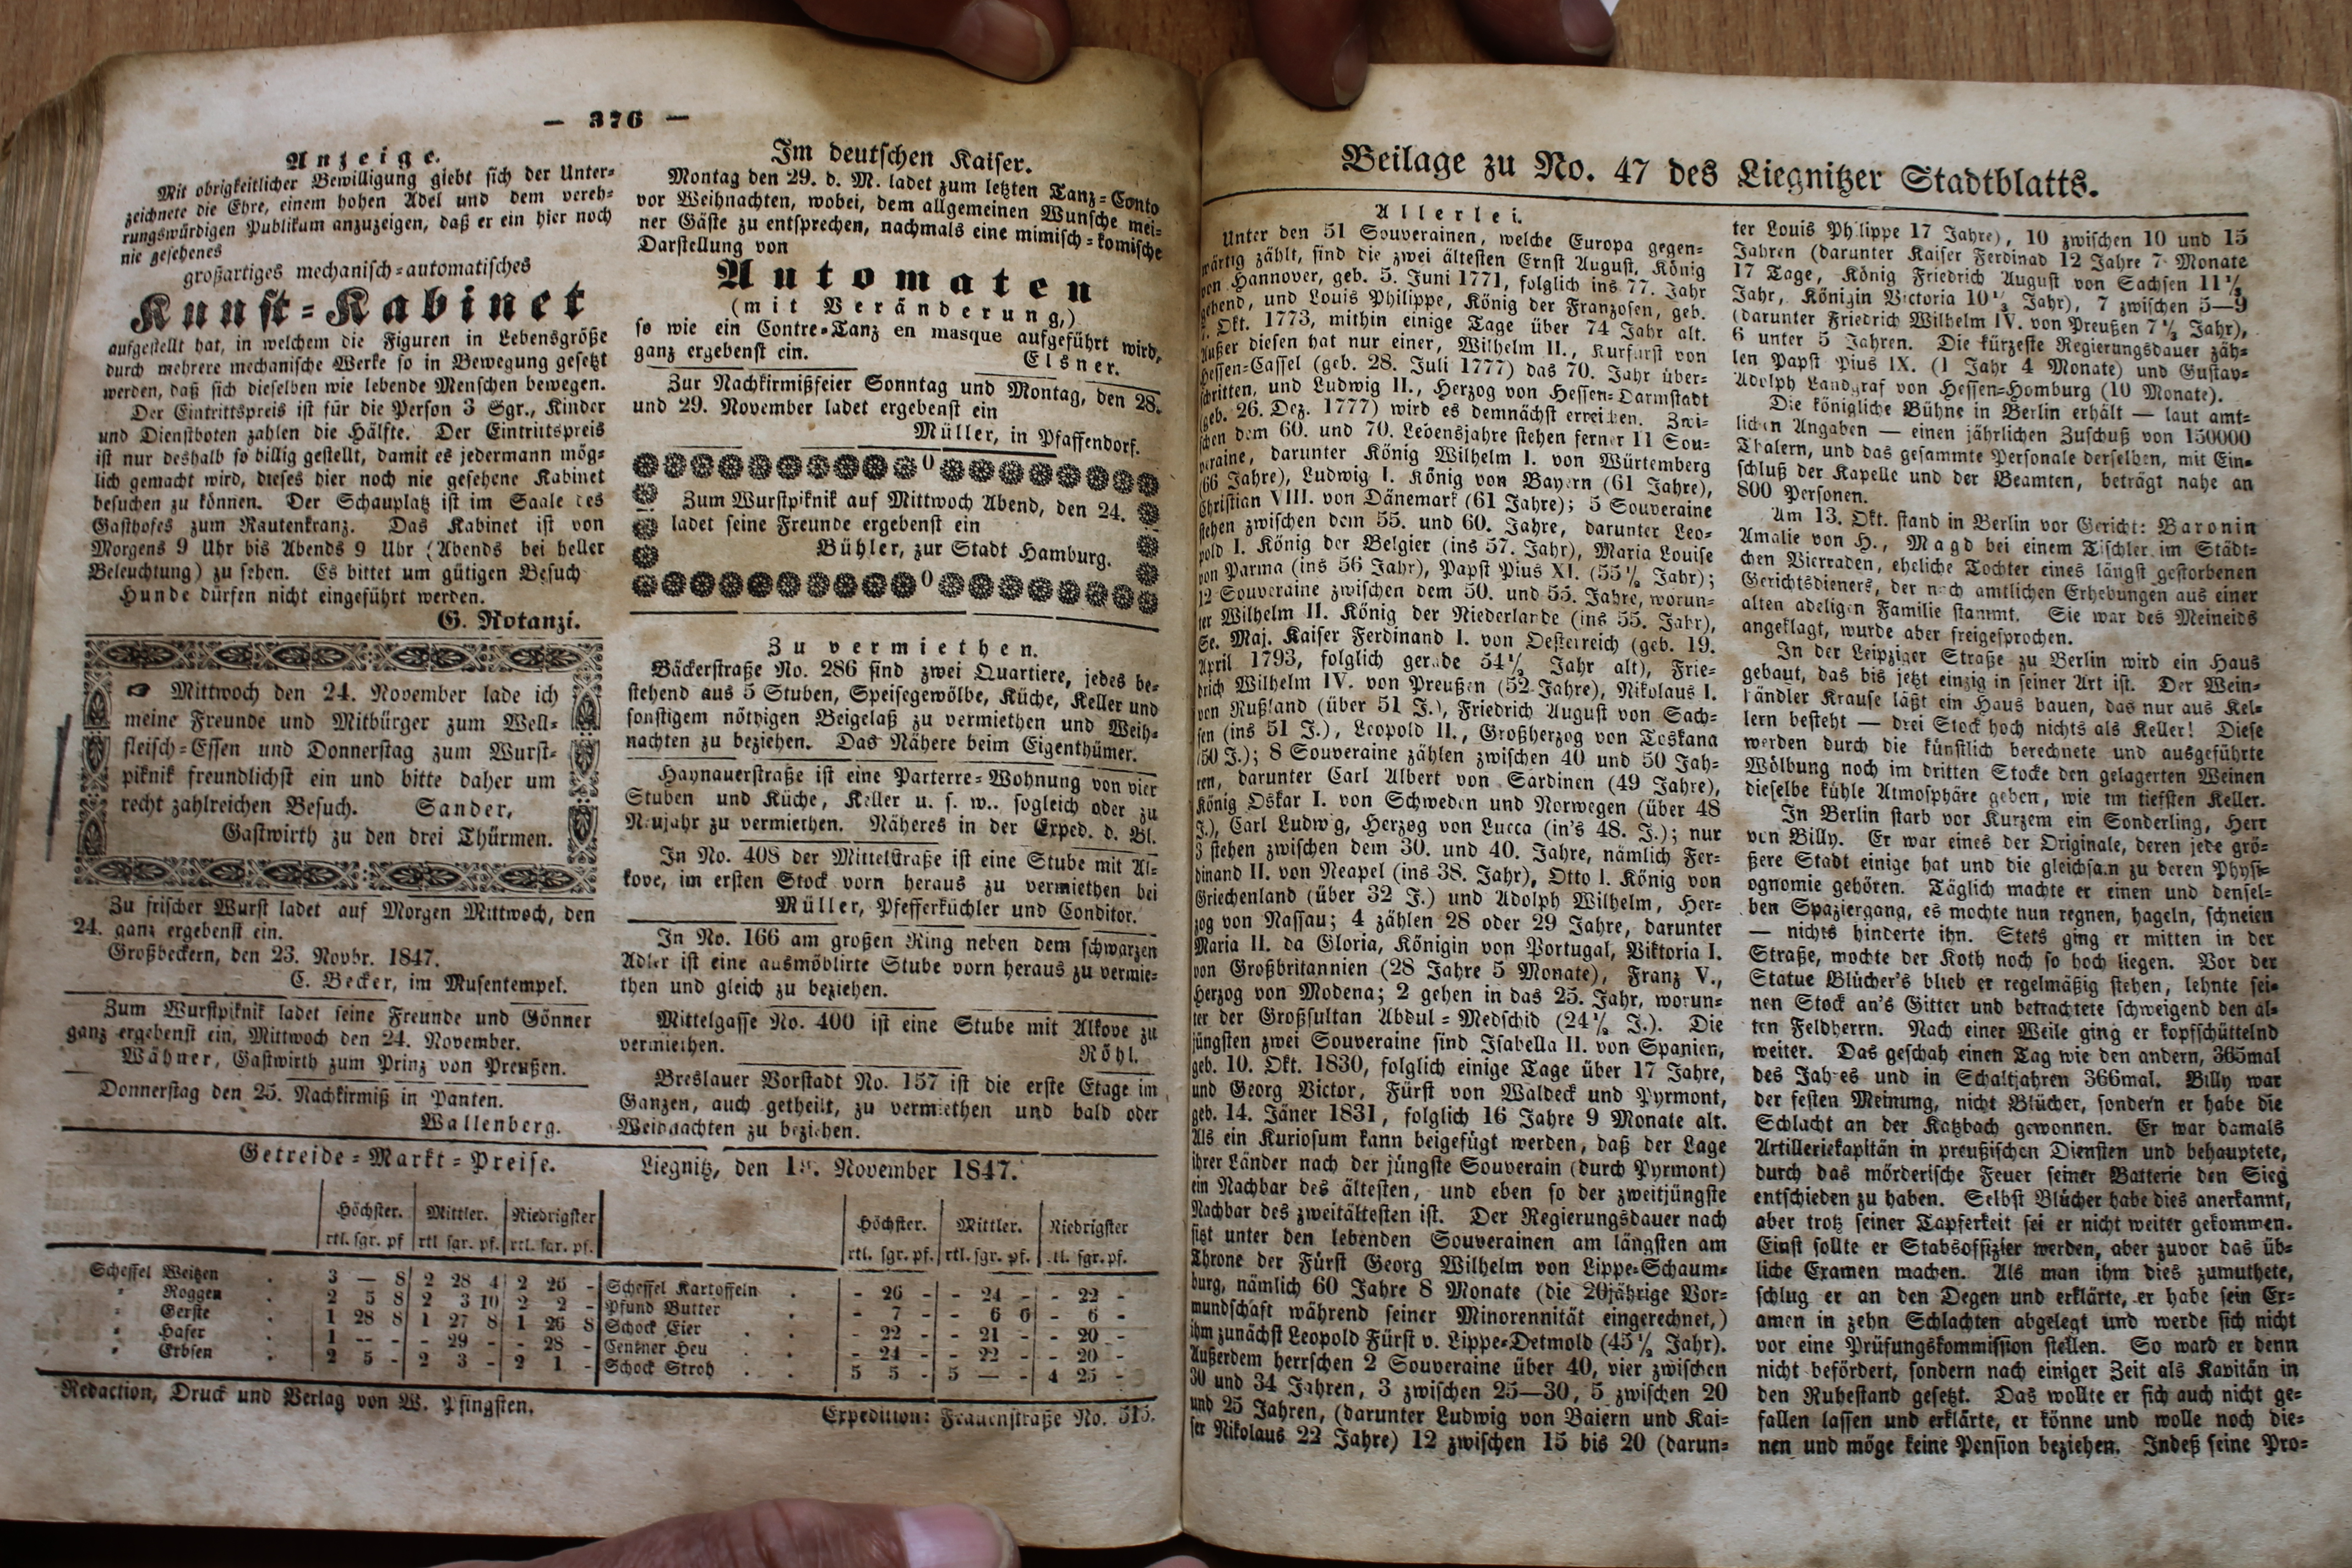 — 376 —
Anzeige.
Mit obrigkeitlicher Bewilligung giebt sich der Unter-
zeichnete die Ehre, einem hohen Adel und dem vereh-
rungswürdigen Publikum anzuzeigen, daß er ein hier noch
nie gesehenes
großartiges mechanisch-automatisches
Kunst-Kabinet
aufgestellt hat, in welchem die Figuren in Lebensgröße
durch mehrere mechanische Werke so in Bewegung gesetzt
werden, daß sich dieselben wie lebende Menschen bewegen.
Der Eintrittspreis ist für die Person 3 Sgr., Kinder
und Dienstboten zahlen die Hälfte. Der Eintrittspreis
ist nur deshalb so billig gestellt, damit es jedermann mög-
lich gemacht wird, dieses hier noch nie gesehene Kabinet
besuchen zu können. Der Schauplatz ist im Saale des
Gasthofes zum Rautenkranz. Das Kabinet ist von
Morgens 9 Uhr bis Abends 9 Uhr (Abends bei heller
Beleuchtung) zu sehen. Es bittet um gütigen Besuch
Hunde dürfen nicht eingeführt werden.
G. Rotanzi.
Mittwoch den 24. November lade ich
meine Freunde und Mitbürger zum Well-
fleisch-Essen und Donnerstag zum Wurst-
piknik freundlichst ein und bitte daher um
recht zahlreichen Besuch. Sander,
Gastwirth zu den drei Thürmen.
Zu frischer Wurst ladet auf Morgen Mittwoch, den
24. ganz ergebenst ein.
Großbeckern, den 23. Novbr. 1847.
C. Becker, im Musentempel.
Zum Wurstpiknik ladet seine Freunde und Gönner
ganz ergebenst ein, Mittwoch den 24. November.
Wähner, Gastwirth zum Prinz von Preußen.
Donnerstag den 25. Nachkirmiß in Panten.
Wallenberg.
Im deutschen Kaiser.
Montag den 29. d. M. ladet zum letzten Tanz-Conto
vor Weihnachten, wobei, dem allgemeinen Wunsche mei-
ner Gäste zu entsprechen, nachmals eine mimisch-komische
Darstellung von
Automaten
(mit Veränderung,)
so wie ein Contre-Tanz en masque aufgeführt wird,
ganz ergebenst ein. Elsner.
Zur Nachkirmißfeier Sonntag und Montag, den 28.
und 29. November ladet ergebenst ein
Müller, in Pfaffendorf.
Zum Wurstpiknik auf Mittwoch Abend, den 24.
ladet seine Freunde ergebenst ein
Bühler, zur Stadt Hamburg.
Zu vermiethen.
Bäckerstraße No. 286 sind zwei Quartiere, jedes be-
stehend aus 5 Stuben, Speisegewölbe, Küche, Keller und
sonstigem nöthigen Beigelaß zu vermiethen und Weih-
nachten zu beziehen. Das Nähere beim Eigenthümer.
Haynauerstraße ist eine Parterre-Wohnung von vier
Stuben und Küche, Keller u. s. w.. sogleich oder zu
Neujahr zu vermiethen. Näheres in der Exped. d. Bl.
In No. 408 der Mittelstraße ist eine Stube mit Al-
kove, im ersten Stock vorn heraus zu vermiethen bei
Müller, Pfefferküchler und Conditor.
In No. 166 am großen Ring neben dem schwarzen
Adler ist eine ausmöblirte Stube vorn heraus zu vermie-
then und gleich zu beziehen.
Mittelgasse No. 400 ist eine Stube mit Alkove zu
vermiethen. Röhl.
Breslauer Vorstadt No. 157 ist die erste Etage im
Ganzen, auch getheilt, zu vermiethen und bald oder
Weihnachten zu beziehen.
Getreide-Markt-Preise. Liegnitz, den November 1847.
Höchster. Mittler. Niedrigster Höchster. Mittler. Niedrigster
rtl. sgr. pf rtl sgr. pf. rtl. sgr. pf. rtl. sgr. pf. rtl. sgr. pf. tl. sgr. pf.
Scheffel Weitzen 3 — 8 2 28 4 2 26 - Scheffel Kartoffeln - 26 - - 24 - - 22 -
" Roggen 2 5 8 2 3 10 2 2 - Pfund Butter - 7 - - 6 6 - 6 -
" Gerste 1 28 8 1 27 8 1 26 8 Schock Eier - 22 - - 21 - - 20 -
" Hafer 1 -- - - 29 - - 28 - Centner Heu - 24 - - 22 - - 20 -
" Erbsen 2 5 - 2 3 - 2 1 - Schock Stroh 5 5 - 5 — - 4 25 -
Redaction, Druck und Verlag von W. Pfingsten. Expedition: Frauenstraße No. 515.
Beilage zu No. 47 des Liegnitzer Stadtblatts.
Allerlei.
Unter den 51 Souverainen, welche Europa gegen-
wärtig zählt, sind die zwei ältesten Ernst August, König
von Hannover, geb. 5. Juni 1771, folglich ins 77. Jahr
gehend, und Louis Philippe, König der Franzosen, geb.
Okt. 1773, mithin einige Tage über 74 Jahr alt.
Außer diesen hat nur einer, Wilhelm II., Kurfürst von
Hessen-Cassel (geb. 28. Juli 1777) das 70. Jahr über-
schritten, und Ludwig II., Herzog von Hessen-Darmstadt
(geb. 26. Dez. 1777) wird es demnächst erreichen. Zwi-
schen dem 60. und 70. Lebensjahre stehen ferner 11 Sou-
veraine, darunter König Wilhelm I. von Würtemberg
(66 Jahre), Ludwig I. König von Bayern (61 Jahre),
Christian VIII. von Dänemark (61 Jahre); 5 Souveraine
stehen zwischen dem 55. und 60. Jahre, darunter Leo-
pold I. König der Belgier (ins 57. Jahr), Maria Louise
von Parma (ins 56 Jahr), Papst Pius XI. (55½ Jahr);
12 Souveraine zwischen dem 50. und 55. Jahre, worun-
ter Wilhelm II. König der Niederlande (ins 55. Jahr),
Se. Maj. Kaiser Ferdinand I. von Oesterreich (geb. 19.
April 1793, folglich gerade 54½ Jahr alt), Frie-
drich Wilhelm IV. von Preußen (52 Jahre), Nikolaus I.
von Rußland (über 51 J.), Friedrich August von Sach-
sen (ins 51 J.), Leopold II., Großherzog von Toskana
(50 J.); 8 Souveraine zählen zwischen 40 und 50 Jah-
ren, darunter Carl Albert von Sardinen (49 Jahre),
König Oskar I. von Schweden und Norwegen (über 48
J.), Carl Ludwig, Herzog von Lucca (in's 48. J.); nur
3 stehen zwischen dem 30. und 40. Jahre, nämlich Fer-
dinand II. von Neapel (ins 38. Jahr), Otto I. König von
Griechenland (über 32 J.) und Adolph Wilhelm, Her-
zog von Nassau; 4 zählen 28 oder 29 Jahre, darunter
Maria II. da Gloria, Königin von Portugal, Viktoria I.
von Großbritannien (28 Jahre 5 Monate), Franz V.,
Herzog von Modena; 2 gehen in das 25. Jahr, worun-
ter der Großsultan Abdul-Medschid (24½ J.). Die
jüngsten zwei Souveraine sind Isabella II. von Spanien,
geb. 10. Okt. 1830, folglich einige Tage über 17 Jahre,
und Georg Victor, Fürst von Waldeck und Pyrmont,
geb. 14. Jäner 1831, folglich 16 Jahre 9 Monate alt.
Als ein Kuriosum kann beigefügt werden, daß der Lage
ihrer Länder nach der jüngste Souverain (durch Pyrmont)
ein Nachbar des ältesten, und eben so der zweitjüngste
Nachbar des zweitältesten ist. Der Regierungsdauer nach
sitzt unter den lebenden Souverainen am längsten am
Throne der Fürst Georg Wilhelm von Lippe-Schaum-
burg, nämlich 60 Jahre 8 Monate (die 20jährige Vor-
mundschaft während seiner Minorennität eingerechnet,)
ihm zunächst Leopold Fürst v. Lippe-Detmold (45½ Jahr).
Außerdem herrschen 2 Souveraine über 40, vier zwischen
30 und 34 Jahren, 3 zwischen 25—30, 5 zwischen 20
und 25 Jahren, (darunter Ludwig von Baiern und Kai-
ser Nikolaus 22 Jahre) 12 zwischen 15 bis 20 (darun-
ter Louis Philippe 17 Jahre), 10 zwischen 10 und 15
Jahren (darunter Kaiser Ferdinad 12 Jahre 7 Monate
17 Tage, König Friedrich August von Sachsen 11½
Jahr, Königin Victoria 10½ Jahr), 7 zwischen 5—9
(darunter Friedrich Wilhelm IV. von Preußen 7½ Jahr),
6 unter 5 Jahren. Die kürzeste Regierungsdauer zäh-
len Papst Pius IX. (1 Jahr 4 Monate) und Gustav-
Adolph Landgraf von Hessen-Homburg (10 Monate).
Die königliche Bühne in Berlin erhält — laut amt-
lichen Angaben — einen jährlichen Zuschuß von 150000
Thalern, und das gesammte Personale derselben, mit Ein-
schluß der Kapelle und der Beamten, beträgt nahe an
800 Personen.
Am 13. Okt. stand in Berlin vor Gericht: Baronin
Amalie von H., Magd bei einem Tischler im Städt-
chen Vierraden, eheliche Tochter eines längst gestorbenen
Gerichtsdieners, der nach amtlichen Erhebungen aus einer
alten adeligen Familie stammt. Sie war des Meineids
angeklagt, wurde aber freigesprochen.
In der Leipziger Straße zu Berlin wird ein Haus
gebaut, das bis jetzt einzig in seiner Art ist. Der Wein-
händler Krause läßt ein Haus bauen, das nur aus Kel-
lern besteht — drei Stock hoch nichts als Keller! Diese
werden durch die künstlich berechnete und ausgeführte
Wölbung noch im dritten Stocke den gelagerten Weinen
dieselbe kühle Atmosphäre geben, wie im tiefsten Keller.
In Berlin starb vor Kurzem ein Sonderling, Herr
von Billy. Er war eines der Originale, deren jede grö-
ßere Stadt einige hat und die gleichsam zu deren Physi-
ognomie gehören. Täglich machte er einen und densel-
ben Spaziergang, es mochte nun regnen, hageln, schneien
— nichts hinderte ihn. Stets ging er mitten in der
Straße, mochte der Koth noch so hoch liegen. Vor der
Statue Blücher's blieb er regelmäßig stehen, lehnte sei-
nen Stock an's Gitter und betrachtete schweigend den al-
ten Feldherrn. Nach einer Weile ging er kopfschüttelnd
weiter. Das geschah einen Tag wie den andern, 365mal
des Jahres und in Schaltjahren 366mal. Billy war
der festen Meinung, nicht Blücher, sondern er habe die
Schlacht an der Katzbach gewonnen. Er war damals
Artilleriekapitän in preußischen Diensten und behauptete,
durch das mörderische Feuer seiner Batterie den Sieg
entschieden zu haben. Selbst Blücher habe dies anerkannt,
aber trotz seiner Tapferkeit sei er nicht weiter gekommen.
Einst sollte er Stabsoffizier werden, aber zuvor das üb-
liche Examen machen. Als man ihm dies zumuthete,
schlug er an den Degen und erklärte, er habe sein Ex-
amen in zehn Schlachten abgelegt und werde sich nicht
vor eine Prüfungskommission stellen. So ward er denn
nicht befördert, sondern nach einiger Zeit als Kapitän in
den Ruhestand gesetzt. Das wollte er sich auch nicht ge-
fallen lassen und erklärte, er könne und wolle noch die-
nen und möge keine Pension beziehen. Indeß seine Pro-